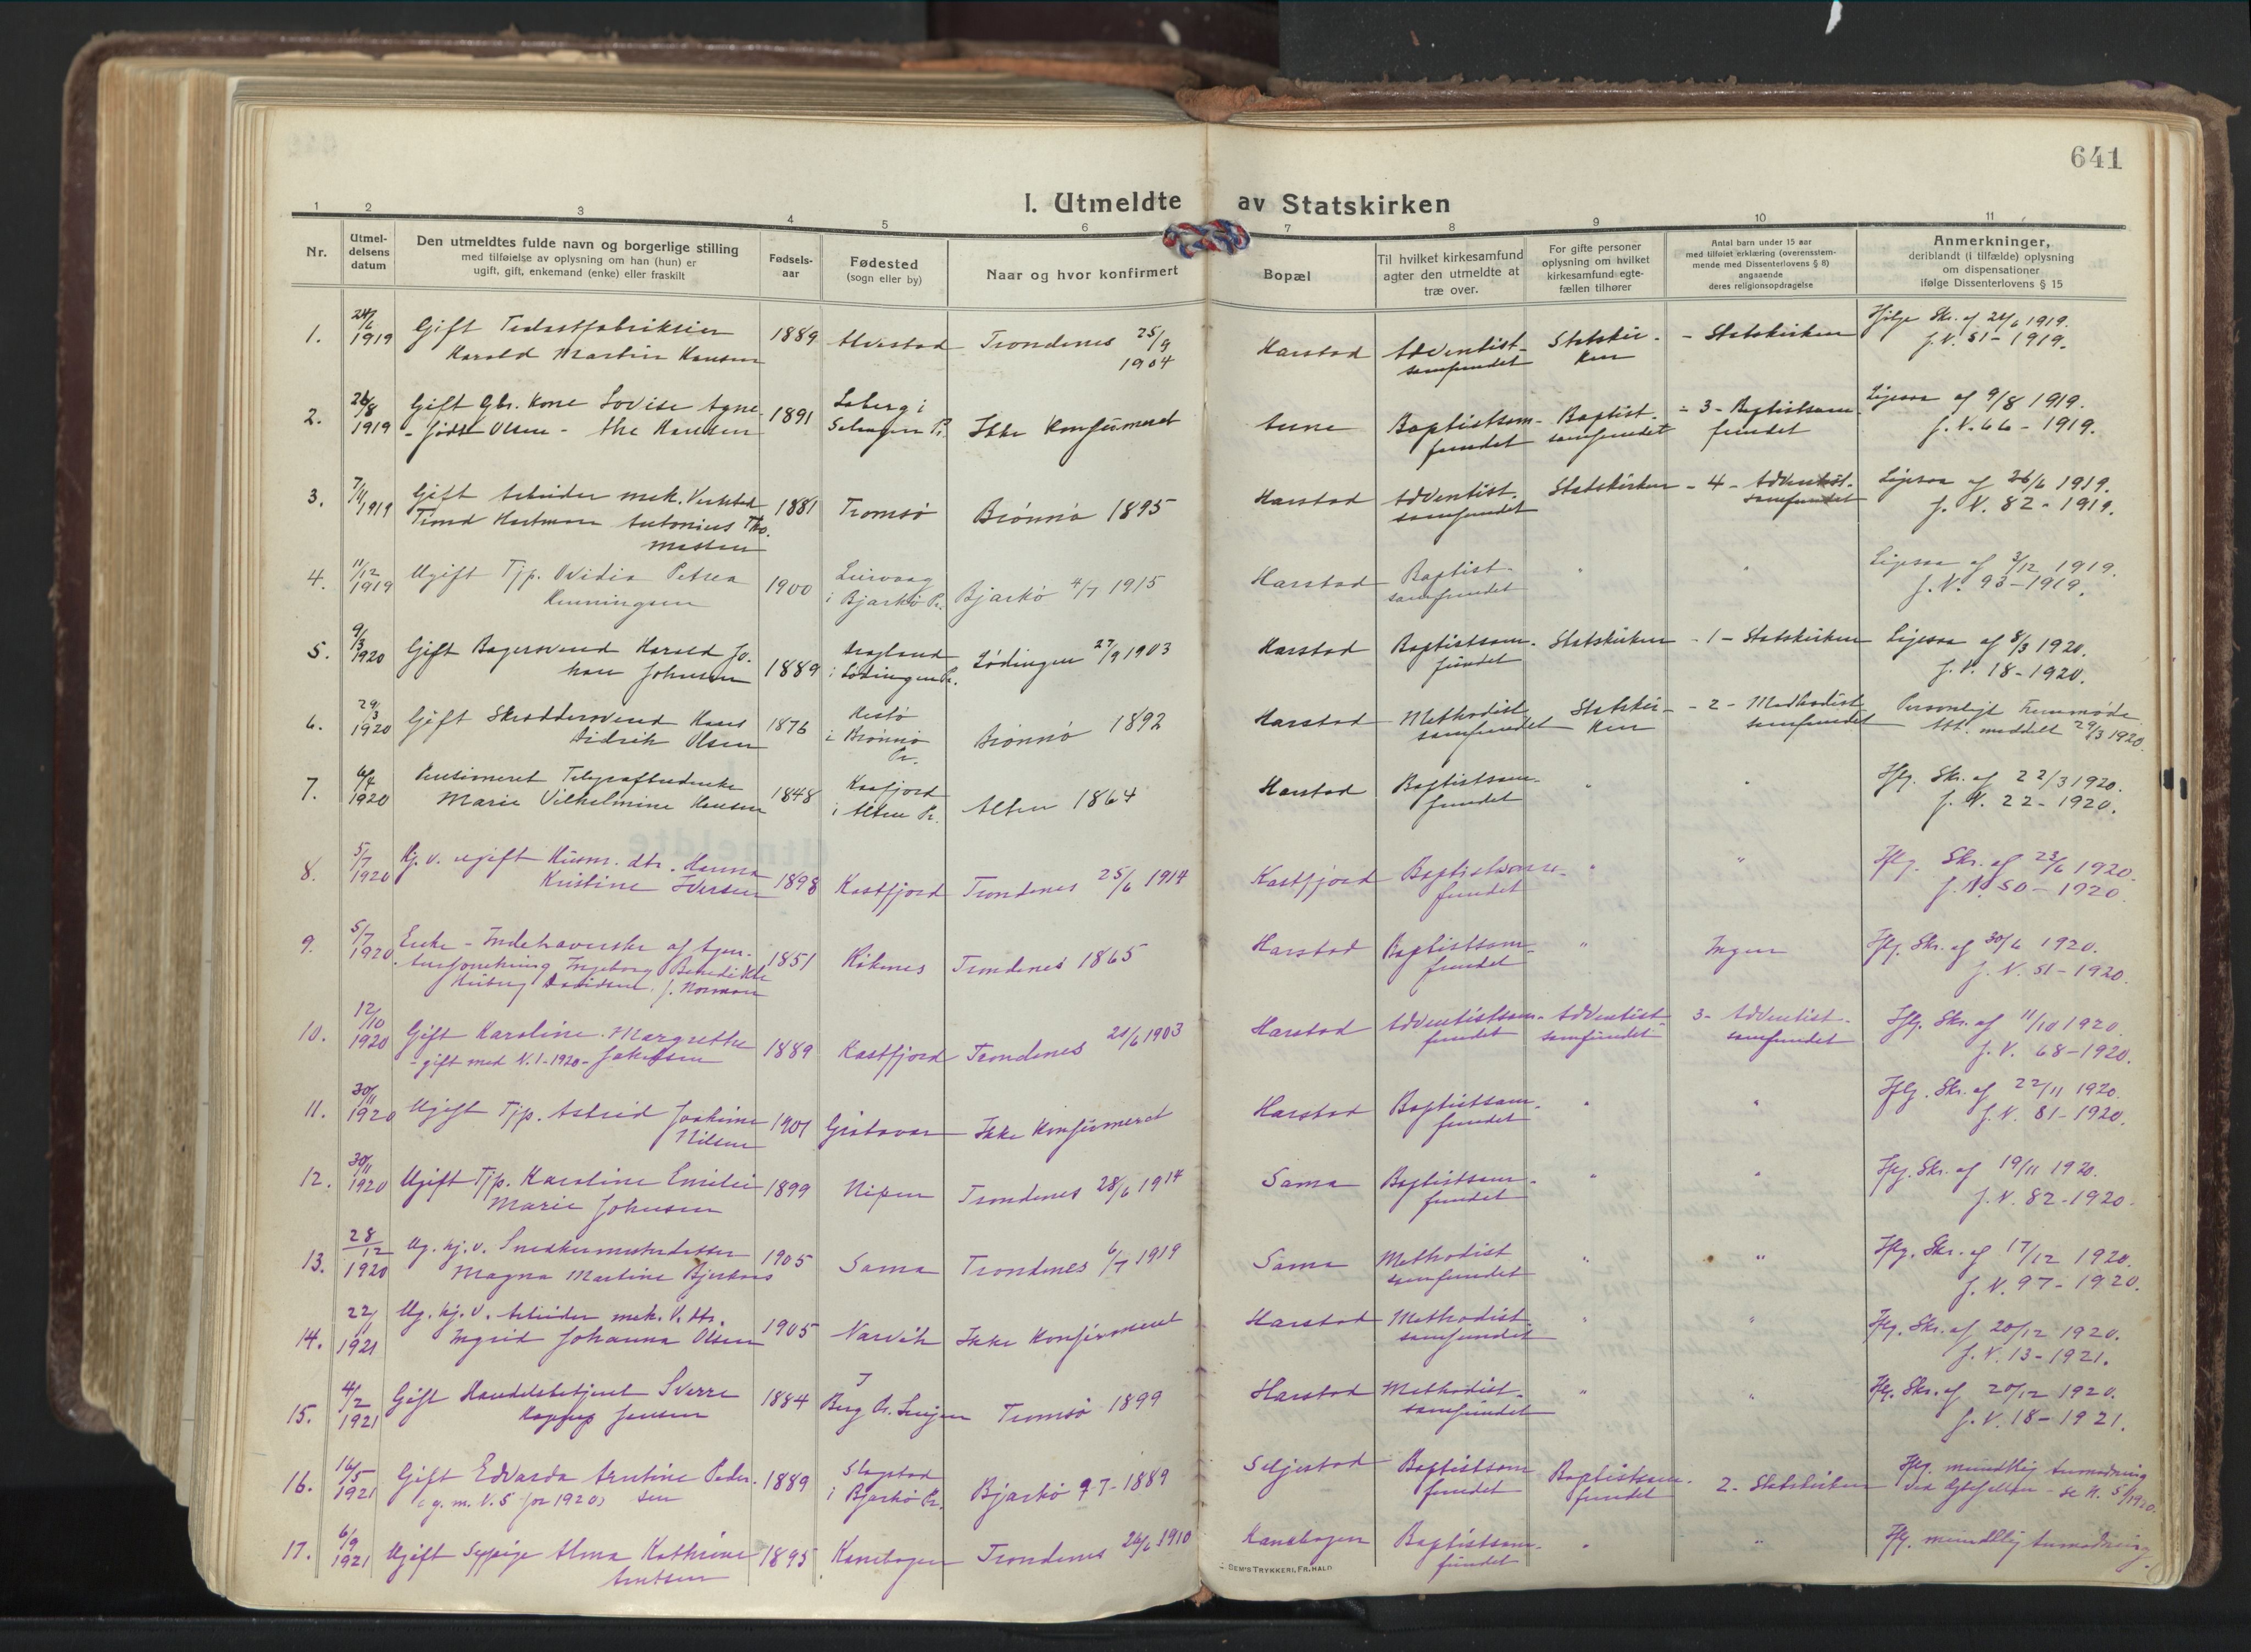 641
I. Utmeldte av Statskirken
1 2 3 4 5 6 7 8 9 10 11
Nr.
Utmel-
delsens
datum
Den utmeldtes fulde navn og borgerlige stilling
med tilføielse av oplysning om han (hun) er
ugift, gift, enkemand (enke) eller fraskilt
Fødsels-
aar
Fødested
(sogn eller by)
Naar og hvor konfirmert
Bopæl
Til hvilket kirkesamfund
agter den utmeldte at
træ over.
For gifte personer
oplysning om hvilket
kirkesamfund egte-
fællen tilhører
Antal barn under 15 aar
med tilføiet erklæring (overensstem-
mende med Dissenterlovens § 8)
angaaende
deres religionsopdragelse
Anmerkninger,
deriblandt (i tilfælde) oplysning
om dispensationer
ifølge Dissenterlovens § 15
1. 24/6 1919 Gift
Harald Martin Hansen 1889 Trondenes 25/9 1904 Harstad Adventist-
samfundet Statskir-
ken - Statskirken Ifølge Skr. af 24/6 1919.
J. N. 51-1919.
2. 26/8 1919 Gift Gbr. Kone Lovise Agne-
- født Olsen - the Hansen 1891 Ikke Konfirmeret Aune Baptistsam-
fundet Baptist-
samfundet - 3 - Baptistsam-
fundet Ligesaa af 9/8 1919.
J. N. 66-1919.
3. 7/11 1919 Gift Arbeider mek. Verksted
Hartman Antonius Tho-
massen 1881 Tromsø Brønnø 1895 Harstad Adventist-
samfundet Statskirken - 4 - Adventist-
samfundet Ligesaa af 26/6 1919.
J. N. 82-1919.
4. 11/12 1919 Ugift Tjp. Ovidia Petrea
Henningsen 1900
i Bjarkø Pr. Bjarkø 4/7 1915 Harstad Baptist-
samfundet " " Ligesaa af 3/12 1919.
J. N. 93-1919.
5. 9/3 1920 Gift Bagersvend Harald Jo-
han Johnsen 1889
i Lødingen Pr. Lødingen 27/9 1903 Harstad Baptistsam-
fundet Statskirken - 1 - Statskirken Ligesaa af 8/3 1920.
J. N. 18-1920.
6. 29/3 1920 Gift Skræddersvend Hans
Didrik Olsen 1876
i Brønnø
Pr. Brønnø 1892 Harstad Methodist
samfundet Statskir-
ken - 2 - Methodist
samfundet Personligt Fremmøde
Att. meddelt 29/3 1920.
7. 6/4 1920 Pensioneret
Marie Vilhelmine Hansen 1848 Kaafjord
i Alten Pr. Alten 1864 Harstad Baptistsam-
fundet " " Iflg. Skr. af 22/3 1920.
J. N. 22-1920.
8. 5/7 1920 Hj. v. ugift Husm. dtr. Hanna
Kristine Iversen 1898 Kastfjord Trondenes 25/6 1914 Kastfjord Baptistsam-
fundet " " Iflg. Skr. af 23/6 1920.
J. N. 50-1920.
9. 5/7 1920 Enke - Indehaverske af Agen-
turforretning Ingeborg Benedikte
Davidsen f. Norman 1851 Røkenes Trondenes 1865 Harstad Baptistsam-
fundet " Ingen Iflg. Skr. af 30/6 1920.
J. N. 51-1920.
10. 12/10 1920 Gift Karoline Margrethe
- gift med N. 1-1920 - 1889 Kastfjord Trondenes 21/6 1903 Harstad Adventistsam-
fundet Adventist-
samfundet 3- Adventist-
samfundet Iflg. Skr. af 11/10 1920.
J. N. 68-1920.
11. 30/11 1920 Ugift Tjp. Astrid Joakime
Nilsen 1901 Ikke Konfirmeret Harstad Baptistsam-
fundet " " Iflg. Skr. af 22/11 1920.
J. N. 81-1920.
12. 30/11 1920 Ugift Tjp. Karoline Emilie
Marie Johnsen 1899 Nipen Trondenes 28/6 1914 Sama Baptistsam-
fundet " " Iflg. Skr. af 19/11 1920.
J. N. 82-1920.
13. 28/12 1920 Ug. hj. v. Snedkermesterdatter
Magna Martine 1905 Sama Trondenes 6/7 1919 Sama Methodist
samfundet " " Iflg. Skr. af 17/12 1920.
J. N. 97-1920.
14. 22/1 1921 Ug. hj. v. Arbeider mek. V. dtr.
Ingrid Johanna Olsen 1905 Narvik Ikke Konfirmeret Harstad Methodist-
samfundet " " Iflg. Skr. af 20/12 1920.
J. N. 13-1921.
15. 4/2 1921 Gift Handelsbetjent Sverre
Jensen 1884 Berg Pr. Senjen Tromsø 1899 Harstad Methodist-
samfundet " " Iflg. Skr. af 20/12 1920.
J. N. 18-1921.
16. 16/5 1921 Gift Edvarda Arntine Peder-
(g. m. N. 5 for 1920) sen 1889
i Bjarkø Pr. Bjarkø 9-7-1889 Seljestad Baptistsam
fundet Baptistsam-
fundet 2 - Statskirken Iflg. mundtlig Anmodning
17. 6/9 1921 Ugift Sypige Alma Kathrine
Arntsen 1895 Kanebogen Trondenes 26/6 1910 Kanebogen Baptistsam-
fundet " " Iflg. mundtlig Anmodning
SEM'S TRYKKERI, FR.HALD